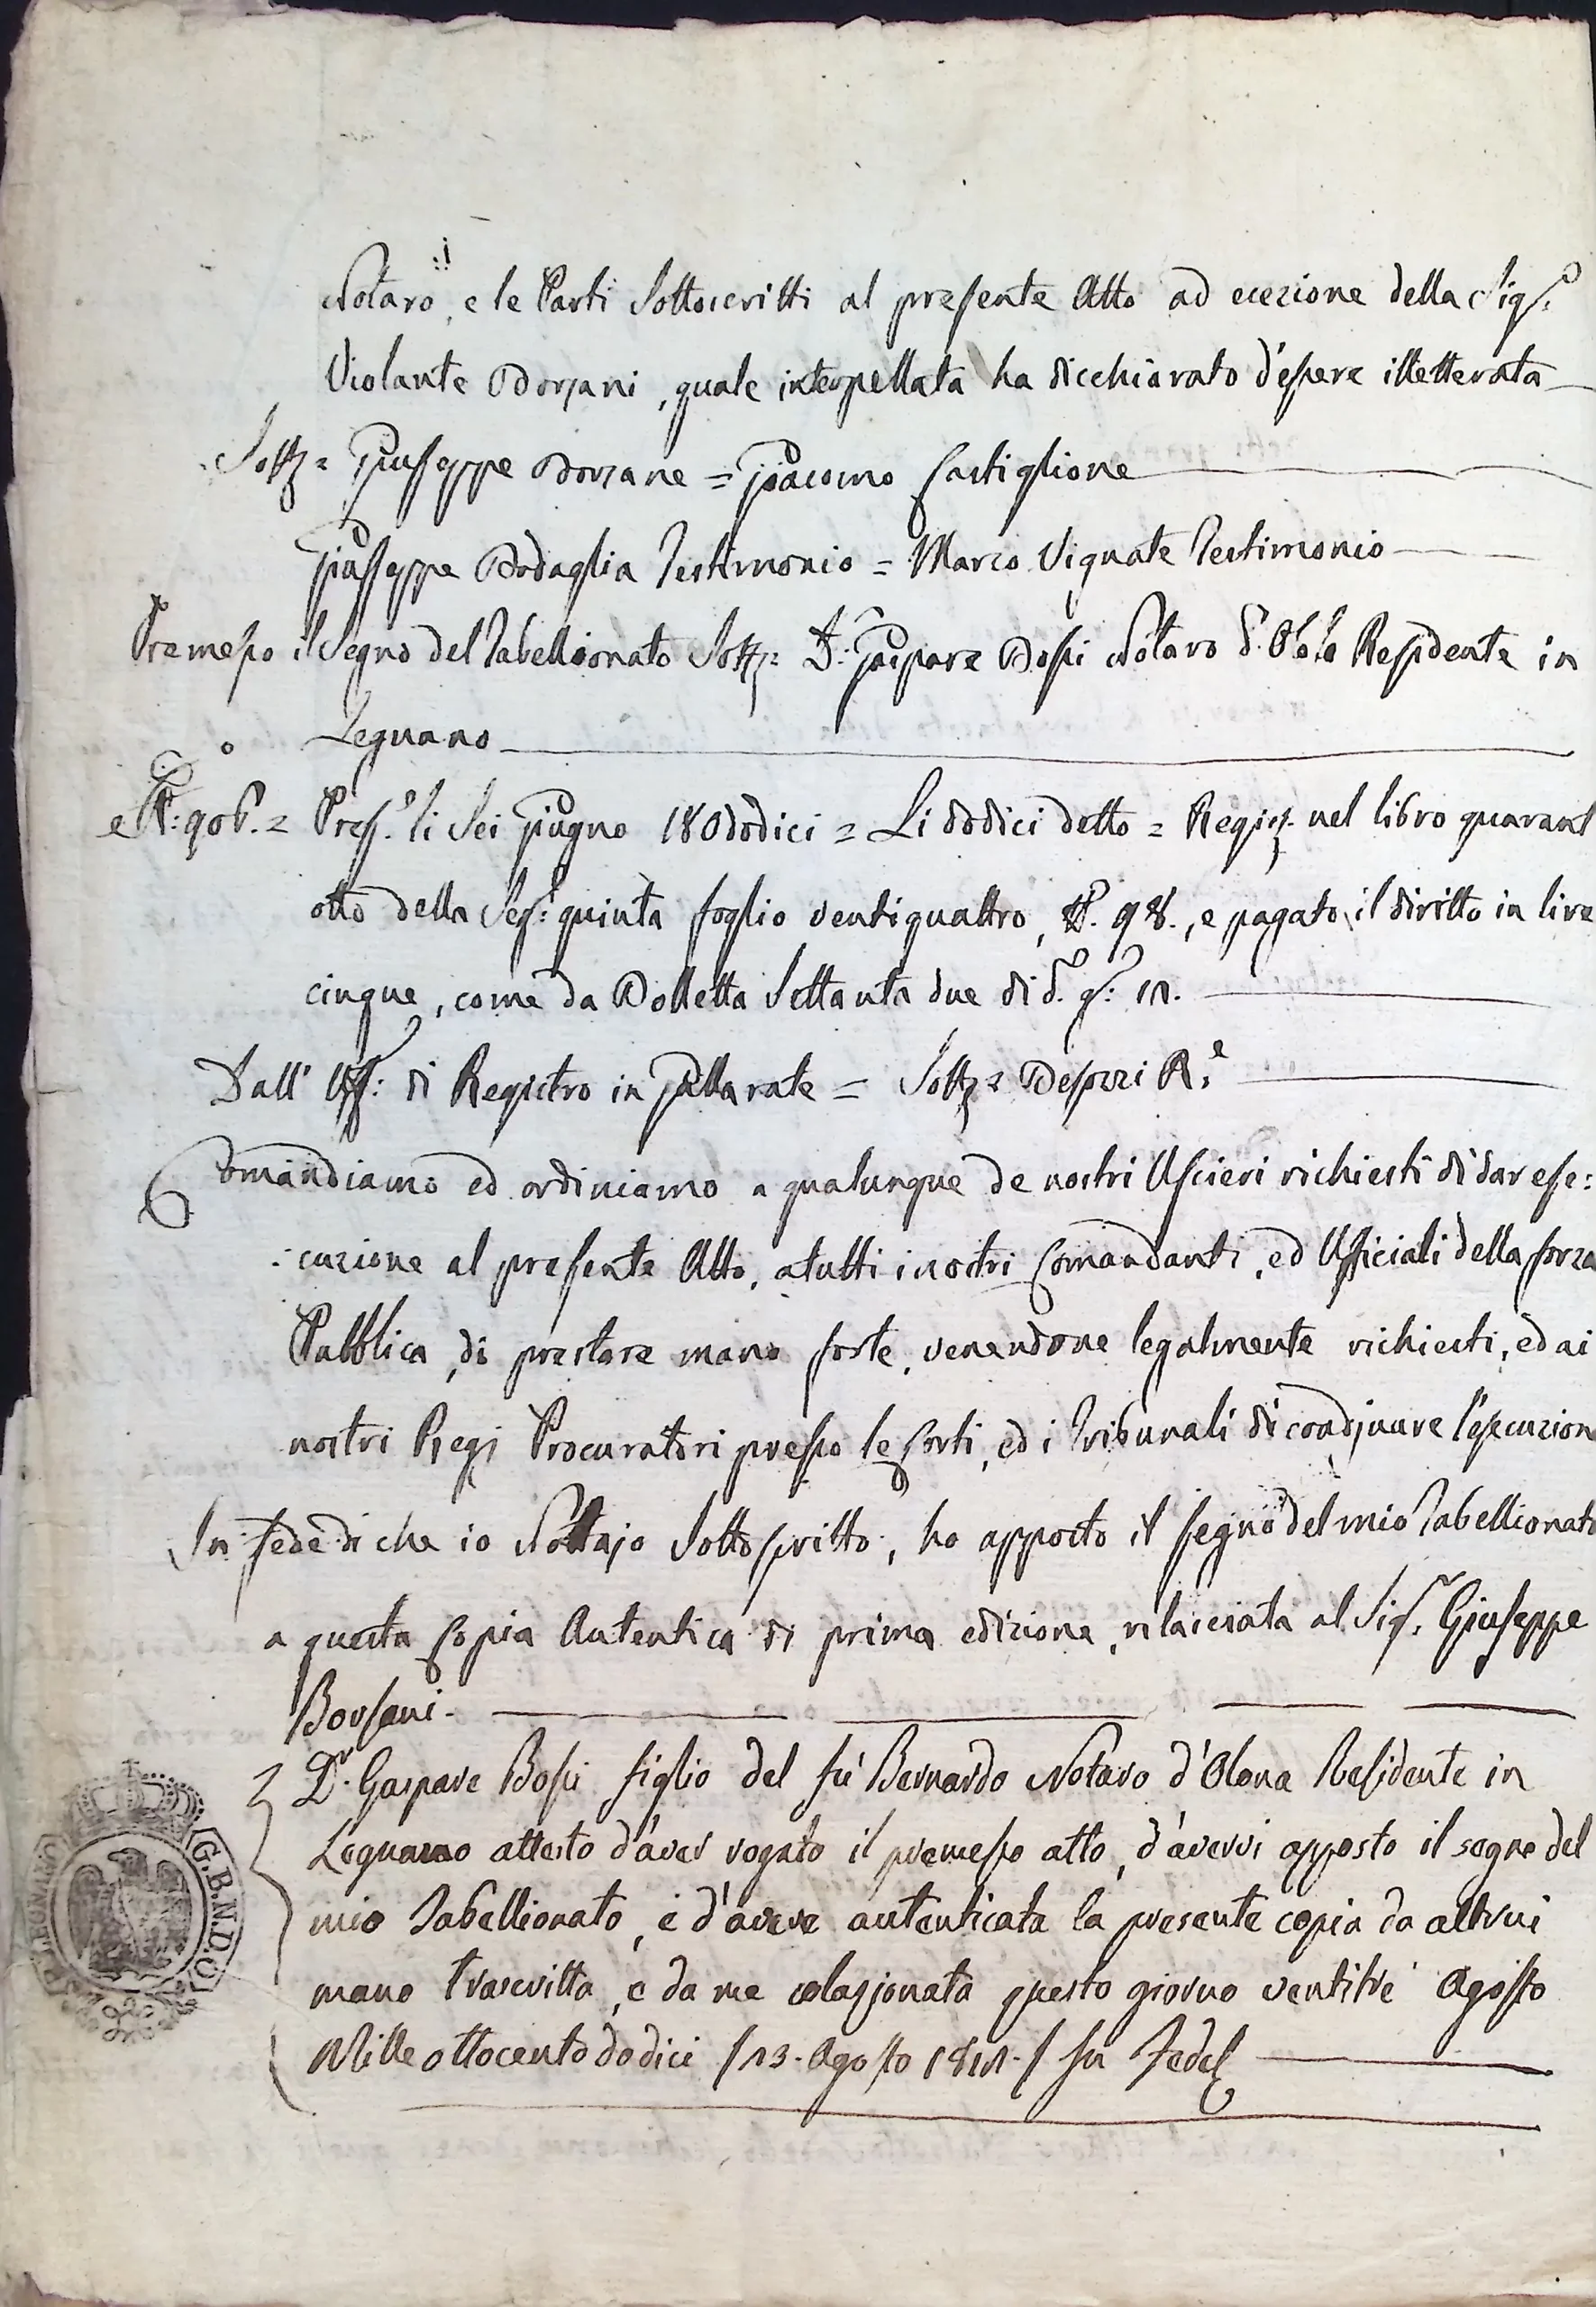 Notaro, e le Parti Sottoscritti al presente Atto ad ecezione della Sig.ª
Violante Borsani, quale interpellata ha dicchiarato d'essere illetterata
Sott.= Giuseppe Borzane = Giacomo Castiglione
Giuseppe Bodaglia Testimonio = Marco Vignate Testimonio
Premesso il Segno del Tabellionato Sott.= D.: Gaspare Bossi Notaro d'Olona Residente in
Legnano
N.: 906. = Pres.º li Sei Giugno 180dodici = Li dodici detto = Regis. nel libro quarant
otto della Seg: quinta foglio ventiquattro, N. 98., e pagato il diritto in lire
cinque, come da Bolletta Settanta due di d.º g.º: 12.
Dall' Uff: di Registro in Gallarate = Sott.= R.e
Comandiamo ed ordiniamo a qualunque de nostri Uscieri richiesti di dar ese:
:cuzione al presente Atto, a tutti i nostri Comandanti, ed Ufficiali della forza
Pubblica, di prestare mano forte, venendone legalmente richiesti, ed ai
nostri Regj Procuratori presso le Corti, ed i Tribunali di coadjuvare l'esecuzion
In fede di che io Nottajo Sottoscritto, ho apposto il segno del mio Tabellionato
a questa Copia Autentica di prima edizione, rilasciata al Sig.r Giuseppe
Borsani.
D.r Gaspare Bossi figlio del fù Bernardo Notaro d'Olona Residente in
Legnano attesto d'aver rogato il premesso atto, d'avervi apposto il segno del
mio Tabellionato, e d'avere autenticata la presente copia da altrui
mano trascritta, e da me colazjonata questo giorno ventitre Agosto
Mille ottocento dodici /23. Agosto 1812./ In Fede
G.B.N.D.O.